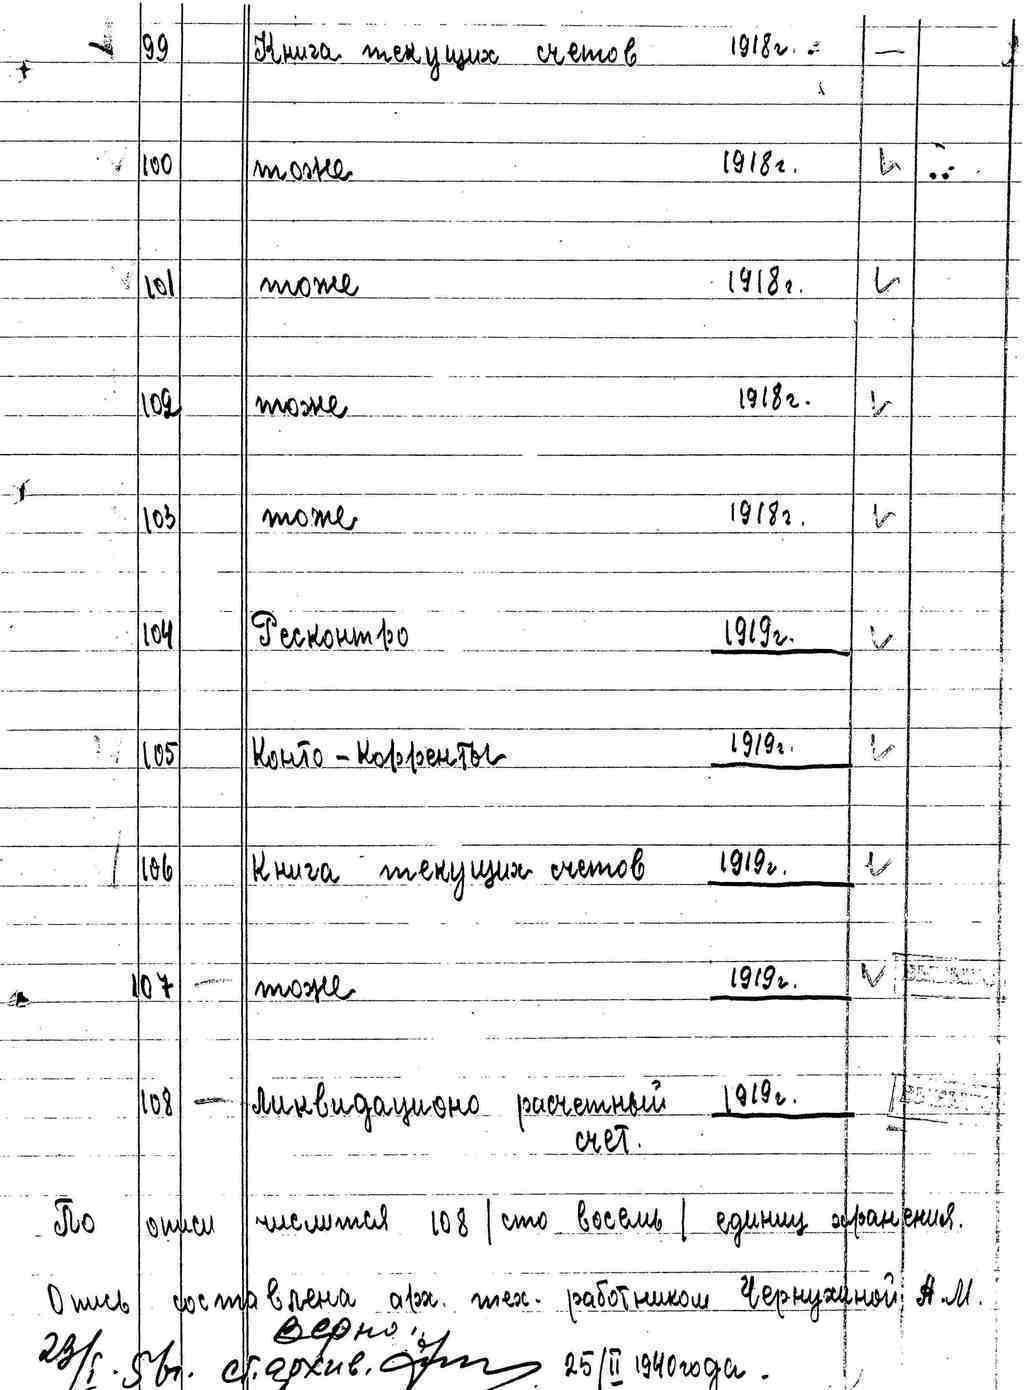 99 Книга текущих счетов 1918г. —
100 тоже 1918г.
101 тоже 1918г.
102 тоже 1918г.
103 тоже 1918г.
104 Ресконтро 1919г.
105 Конто-Корренты 1919г.
106 Книга текущих счетов 1919г.
107 — тоже 1919г.
108 — Ликвидационо расчетный 1919г.
счет.
По описи числится 108 /сто восемь/ единиц хранения.
Опись составлена арх. тех. работником Чернухиной А.М.
Верно:
ст. архив. 25/II 1940 года.